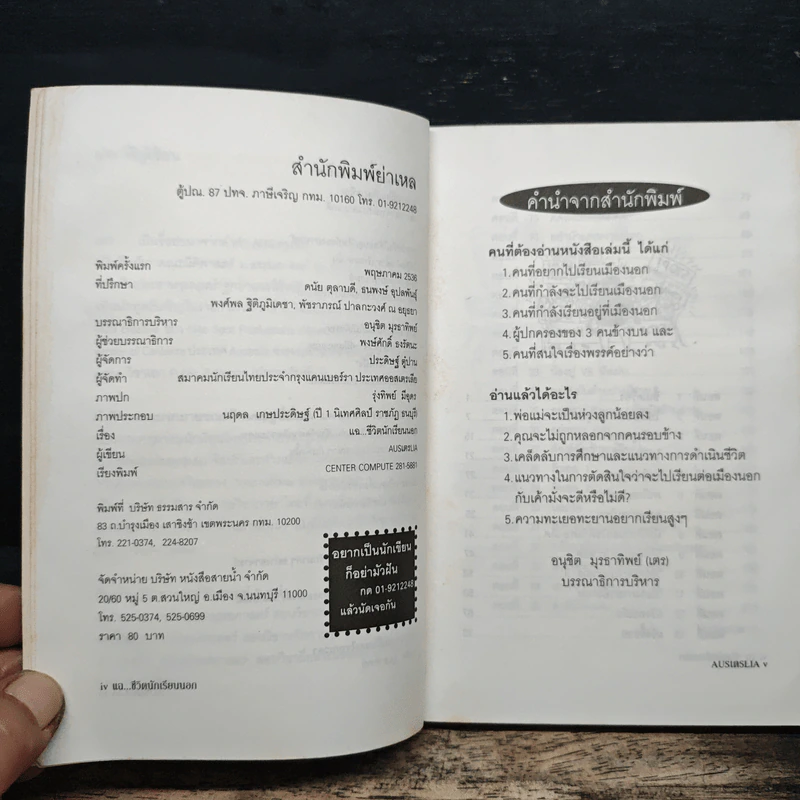 สำนักพิมพ์ย่าเหล
ตู้ปณ. 87 ปทจ. ภาษีเจริญ กทม. 10160 โทร. 01-9212248
พิมพ์ครั้งแรก พฤษภาคม 2536
ที่ปรึกษา ดนัย ตุลาบดี, ธนพงษ์ อุปลพันธุ์
พงศ์พล ฐิติภูมิเดชา, พัชราภรณ์ ปาลกะวงศ์ ณ อยุธยา
บรรณาธิการบริหาร อนุชิต มุรธาทิพย์
ผู้ช่วยบรรณาธิการ พงษ์ศักดิ์ ธงรัตนะ
ผู้จัดการ ประดิษฐ์ ตู้ปาน
ผู้จัดทำ สมาคมนักเรียนไทยประจำกรุงแคนเบอร์รา ประเทศออสเตรเลีย
ภาพปก รุ่งทิพย์ มีอุดร
ภาพประกอบ นฤดล เกษประดิษฐ์ (ปี 1 นิเทศศิลป์ ราชภัฏ ธนบุรี)
เรื่อง แฉ...ชีวิตนักเรียนนอก
ผู้เขียน AUSเตรLIA
เรียงพิมพ์ CENTER COMPUTE 281-5881
พิมพ์ที่ บริษัท ธรรมสาร จำกัด
83 ถ.บำรุงเมือง เสาชิงช้า เขตพระนคร กทม. 10200
โทร. 221-0374, 224-8207
จัดจำหน่าย บริษัท หนังสือสายน้ำ จำกัด
20/60 หมู่ 5 ต.สวนใหญ่ อ.เมือง จ.นนทบุรี 11000
โทร. 525-0374, 525-0699
ราคา 80 บาท
อยากเป็นนักเขียน
ก็อย่ามัวฝัน
กด 01-9212248
แล้วนัดเจอกัน
iv แฉ...ชีวิตนักเรียนนอก
คำนำจากสำนักพิมพ์
คนที่ต้องอ่านหนังสือเล่มนี้ ได้แก่
1.คนที่อยากไปเรียนเมืองนอก
2.คนที่กำลังจะไปเรียนเมืองนอก
3.คนที่กำลังเรียนอยู่ที่เมืองนอก
4.ผู้ปกครองของ 3 คนข้างบน และ
5.คนที่สนใจเรื่องพรรค์อย่างว่า
อ่านแล้วได้อะไร
1.พ่อแม่จะเป็นห่วงลูกน้อยลง
2.คุณจะไม่ถูกหลอกจากคนรอบข้าง
3.เคล็ดลับการศึกษาและแนวทางการดำเนินชีวิต
4.แนวทางในการตัดสินใจว่าจะไปเรียนต่อเมืองนอก
กับเค้ามั่งจะดีหรือไม่ดี?
5.ความทะเยอทะยานอยากเรียนสูงๆ
อนุชิต มุรธาทิพย์ (เตร)
บรรณาธิการบริหาร
AUSเตรLIA v